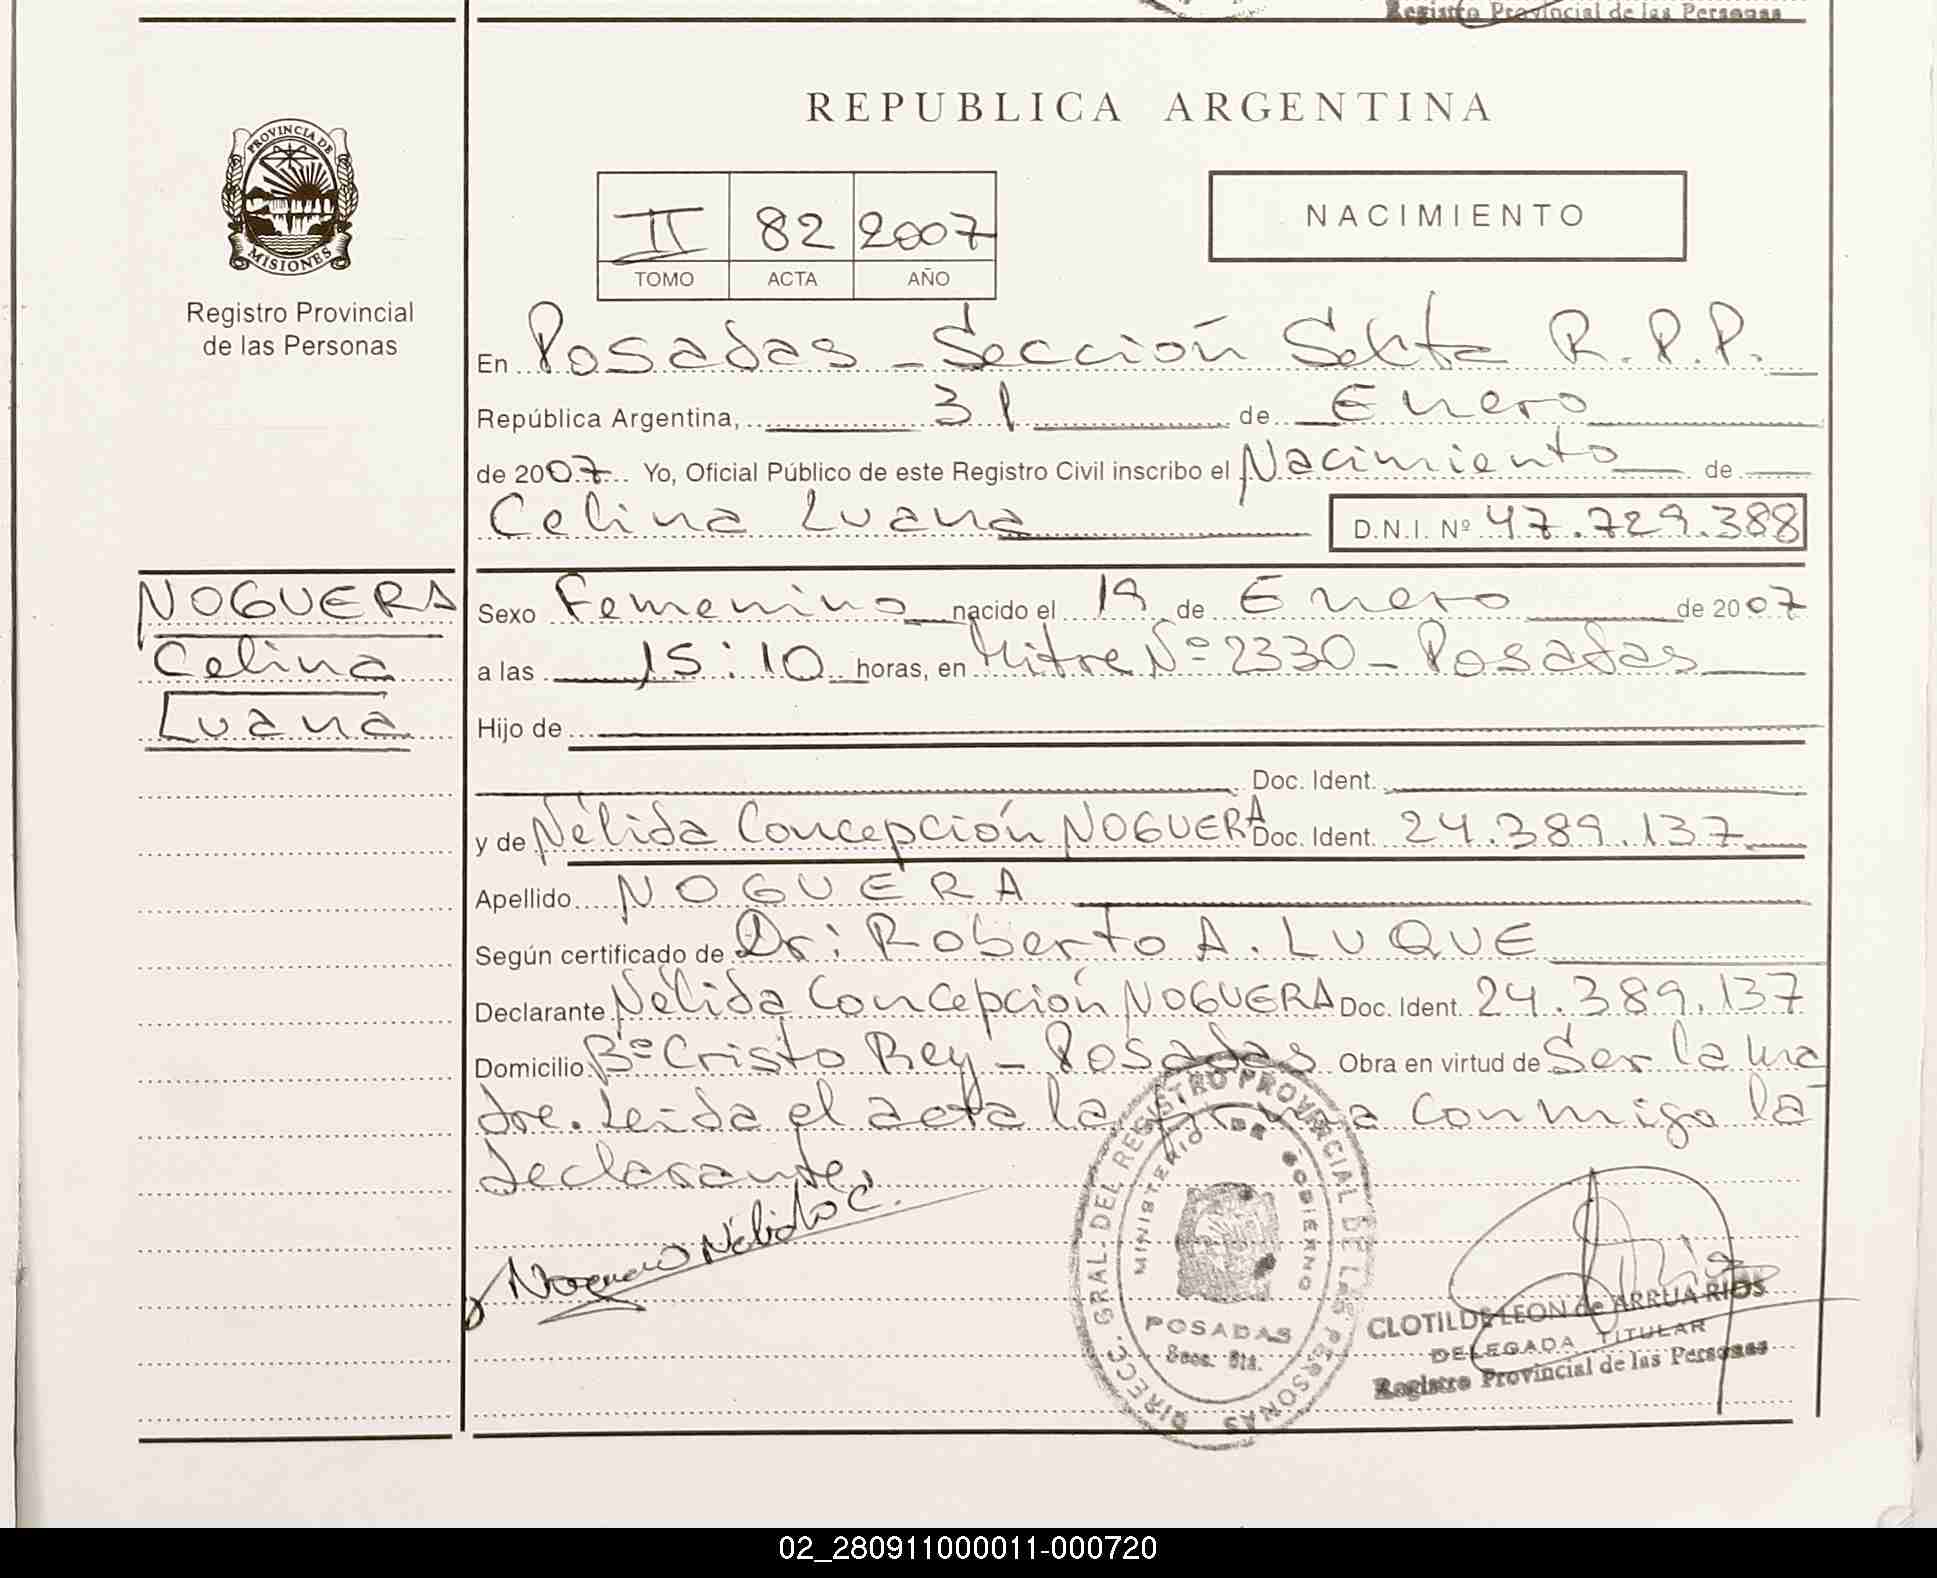 Registro Provincial de las Personas
REPUBLICA ARGENTINA
PROVINCIA DE
MISIONES
Registro Provincial
de las Personas
II 82 2007
TOMO ACTA AÑO
NACIMIENTO
En Posadas - Sección Sexta R.P.P.
República Argentina, 31 de Enero
de 2007 Yo, Oficial Público de este Registro Civil inscribo el Nacimiento de
Celina Luana D.N.I. Nº 47.729.388
NOGUERA
Celina
Luana
Sexo Femenino nacido el 19 de Enero de 2007
a las 15:10 horas, en Mitre Nº 2330 - Posadas
Hijo de
Doc. Ident.
y de Nélida Concepción NOGUERA Doc. Ident. 24.389.137
Apellido NOGUERA
Según certificado de Dr: Roberto A. LUQUE
Declarante Nélida Concepción NOGUERA Doc. Ident. 24.389.137
Domicilio Bº Cristo Rey - Posadas Obra en virtud de Ser la ma
dre. Leida el acta la firma conmigo la
declarante.
Noguera Nelida C.
DIREC. GRAL. DEL REGISTRO PROVINCIAL DE LAS PERSONAS
MINISTERIO DE GOBIERNO
POSADAS
Secc. 6ta.
CLOTILDE LEON de ARRUA RIOS
DELEGADA TITULAR
Registro Provincial de las Personas
02_280911000011-000720